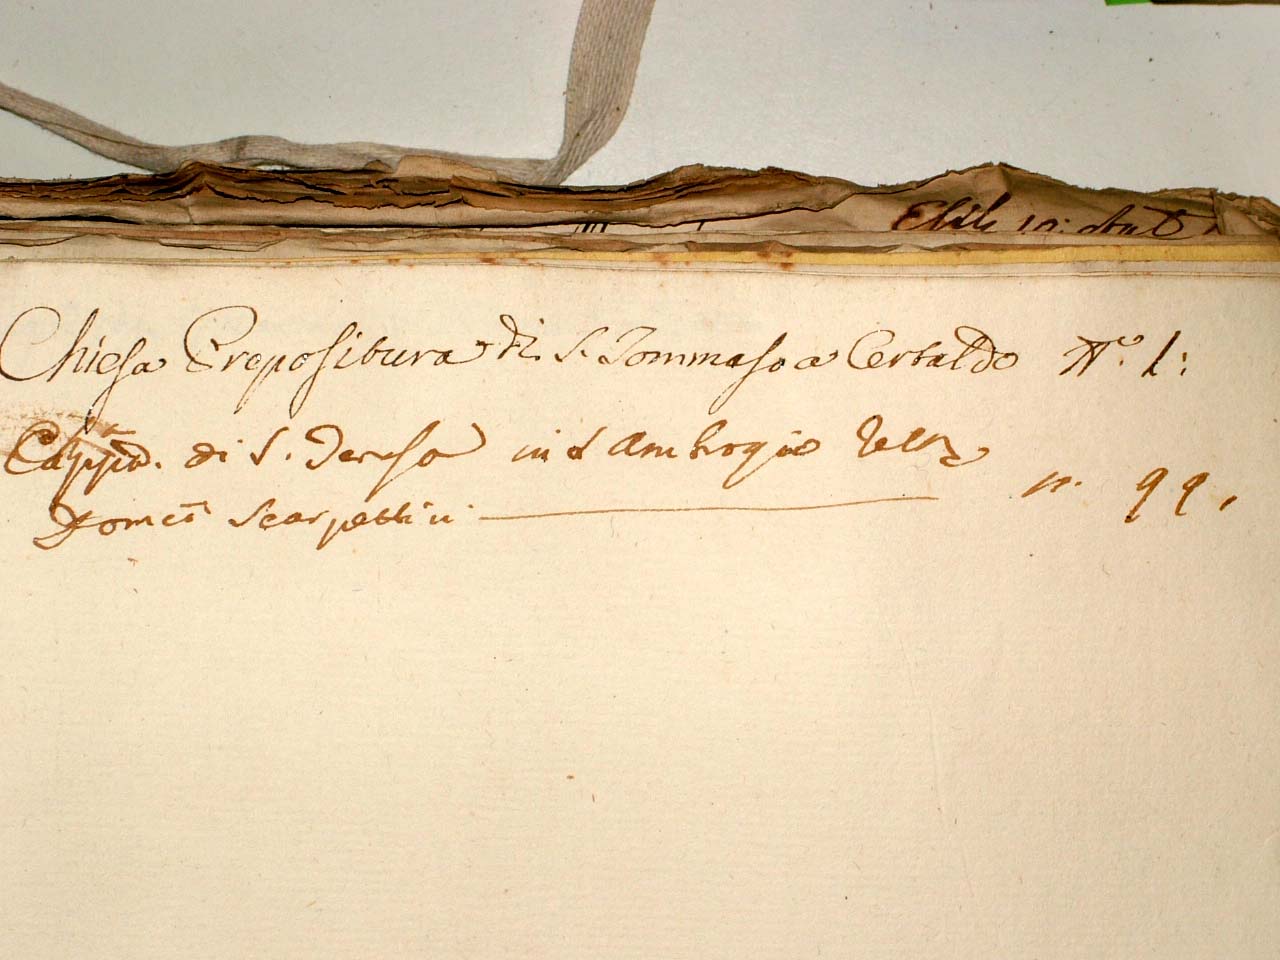 Chiesa Prepositura di S. Tommaso a Certaldo N.º 1:
Capp.ia di S. Teresa in S Ambrogio
Domco Scarpettini n. 99.